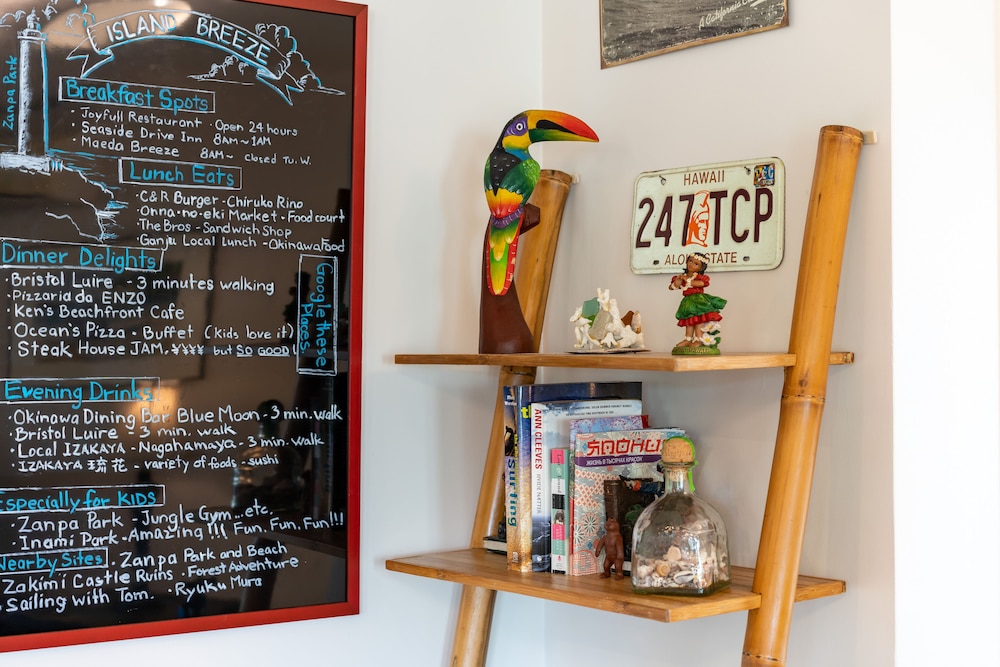 Zanpa Park
ISLAND BREEZE
Breakfast Spots
· Joyfull Restaurant · Open 24 hours
· Seaside Drive Inn 8AM~1AM
· Maeda Breeze 8AM~ closed Tu.W.
Lunch Eats
· C&R Burger - Chiruka Rino
· Onna-no-eki Market · Food court
· The Bros - Sandwich Shop
· Ganju Local Lunch - Okinawa Food
Dinner Delights
· Bristol Luire - 3 minutes walking
· Pizzaria da ENZO
· Ken's Beachfront Cafe
· Ocean's Pizza · Buffet (kids love it)
· Steak House JAM. ¥¥¥¥ but SO GOOD!
Google these Places.
Evening Drinks
· Okinawa Dining Bar Blue Moon - 3 min. walk
· Bristol Luire - 3 min. walk
· Local IZAKAYA - Nagahamaya - 3 min. walk
· IZAKAYA 琉花 - variety of foods · sushi
Especially for KIDS
· Zanpa Park - Jungle Gym...etc.
· Inami Park - Amazing!!! Fun. Fun. Fun!!!
Nearby Sites
· Zanpa Park and Beach
· Zakimi Castle Ruins · Forest Adventure
· Sailing with Tom. · Ryuku Mura
A California
HAWAII
247 TCP
ALOHA STATE
surfing
ANN CLEEVES
HIDDEN DEPTHS
ЖИЗНЬ В ТЫСЯЧАХ КРАСОК